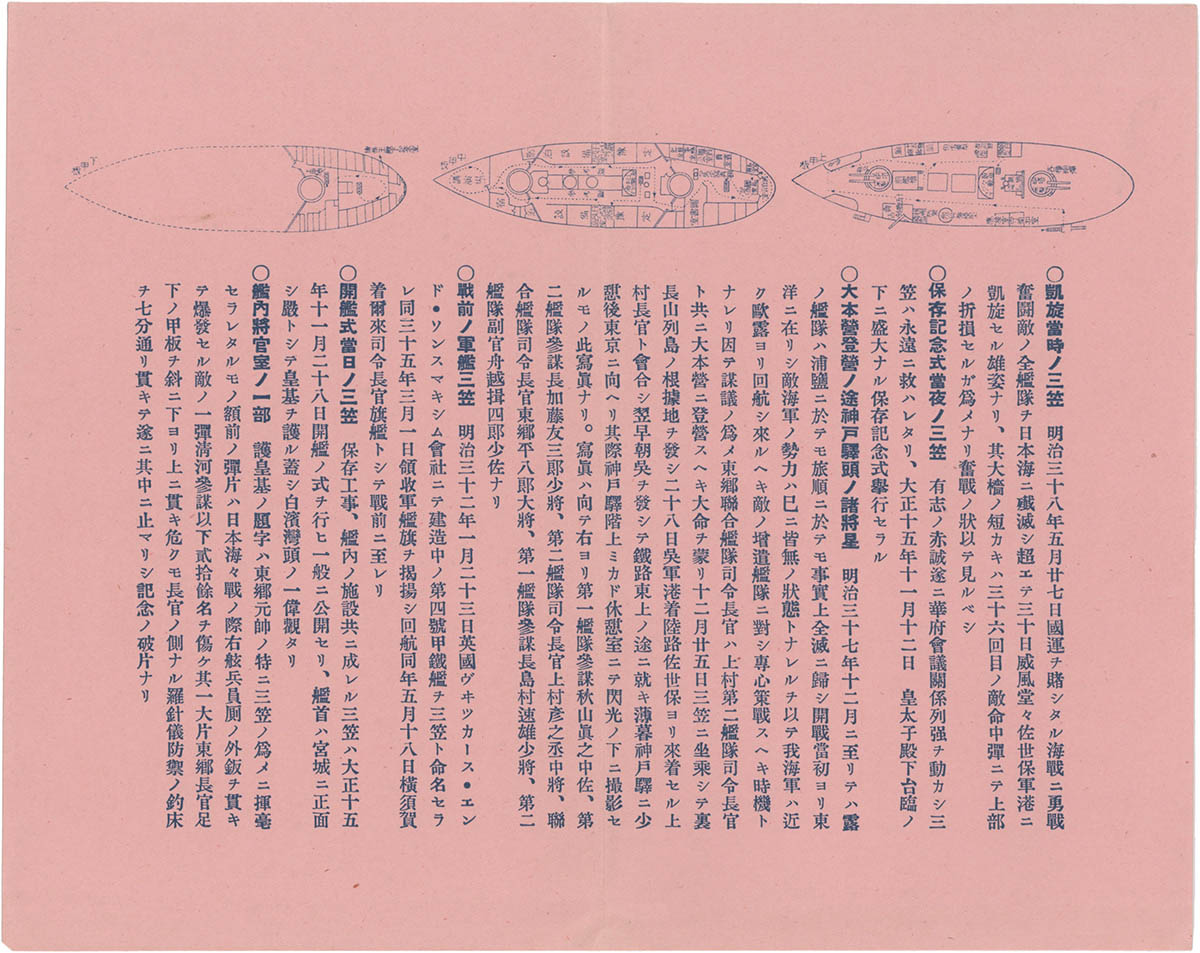 上甲板
中甲板
下甲板
〇凱旋當時ノ三笠　明治三十八年五月廿七日國運チ賭シタル海戰ニ勇戰
奮鬪敵ノ全艦隊チ日本海ニ殲滅シ超エテ三十日威風堂々佐世保軍港ニ
凱旋セル雄姿ナリ、其大檣ノ短カキハ三十六回目ノ敵命中彈ニテ上部
ノ折損セルガ爲メナリ奮戰ノ狀以テ見ルベシ
〇保存記念式當夜ノ三笠　有志ノ赤誠遂ニ華府會議關係列强チ動カシ三
笠ハ永遠ニ救ハレタリ、大正十五年十一月十二日　皇太子殿下台臨ノ
下ニ盛大ナル保存記念式擧行セラル
〇大本營登營ノ途神戸驛頭ノ諸將星　明治三十七年十二月ニ至リテハ露
ノ艦隊ハ浦鹽ニ於テモ旅順ニ於テモ事實上全滅ニ歸シ開戰當初ヨリ東
洋ニ在リシ敵海軍ノ勢力ハ巳ニ皆無ノ狀態トナレルチ以テ我海軍ハ近
ク歐露ヨリ回航シ來ルヘキ敵ノ增遣艦隊ニ對シ專心策戰スヘキ時機ト
ナレリ因テ謀議ノ爲メ東鄕聯合艦隊司令長官ハ上村第二艦隊司令長官
ト共ニ大本營ニ登營スヘキ大命チ蒙リ十二月廿五日三笠ニ坐乘シテ裏
長山列島ノ根據地チ發シ二十八日吳軍港着陸路佐世保ヨリ來着セル上
村長官ト會合シ翌早朝吳チ發シテ鐵路東上ノ途ニ就キ薄暮神戸驛ニ少
憩後東京ニ向ヘリ其際神戸驛階上ミカド休憩室ニテ閃光ノ下ニ撮影セ
ルモノ此寫眞ナリ。寫眞ハ向テ右ヨリ第一艦隊參謀秋山眞之中佐、第
二艦隊參謀長加藤友三郎少將、第二艦隊司令長官上村彥之丞中將、聯
合艦隊司令長官東鄕平八郎大將、第一艦隊參謀長島村速雄少將、第二
艦隊副官舟越揖四郎少佐ナリ
〇戰前ノ軍艦三笠　明治三十二年一月二十三日英國ヴヰツカース・エン
ド・ソンスマキシム會社ニテ建造中ノ第四號甲鐵艦チ三笠ト命名セラ
レ同三十五年三月一日領收軍艦旗チ揭揚シ回航同年五月十八日橫須賀
着爾來司令長官旗艦トシテ戰前ニ至レリ
〇開艦式當日ノ三笠　保存工事、艦內ノ施設共ニ成レル三笠ハ大正十五
年十一月二十八日開艦ノ式チ行ヒ一般ニ公開セリ、艦首ハ宮城ニ正面
シ殿トシテ皇基チ護ル蓋シ白濱灣頭ノ一偉觀タリ
〇艦內將官室ノ一部　護皇基ノ題字ハ東鄕元帥ノ特ニ三笠ノ爲メニ揮毫
セラレタルモノ額前ノ彈片ハ日本海々戰ノ際右舷兵員厠ノ外鈑チ貫キ
テ爆發セル敵ノ一彈淸河參謀以下貳拾餘名チ傷ケ其一大片東鄕長官足
下ノ甲板チ斜ニ下ヨリ上ニ貫キ危クモ長官ノ側ナル羅針儀防禦ノ釣床
チ七分通リ貫キテ遂ニ其中ニ止マリシ記念ノ破片ナリ